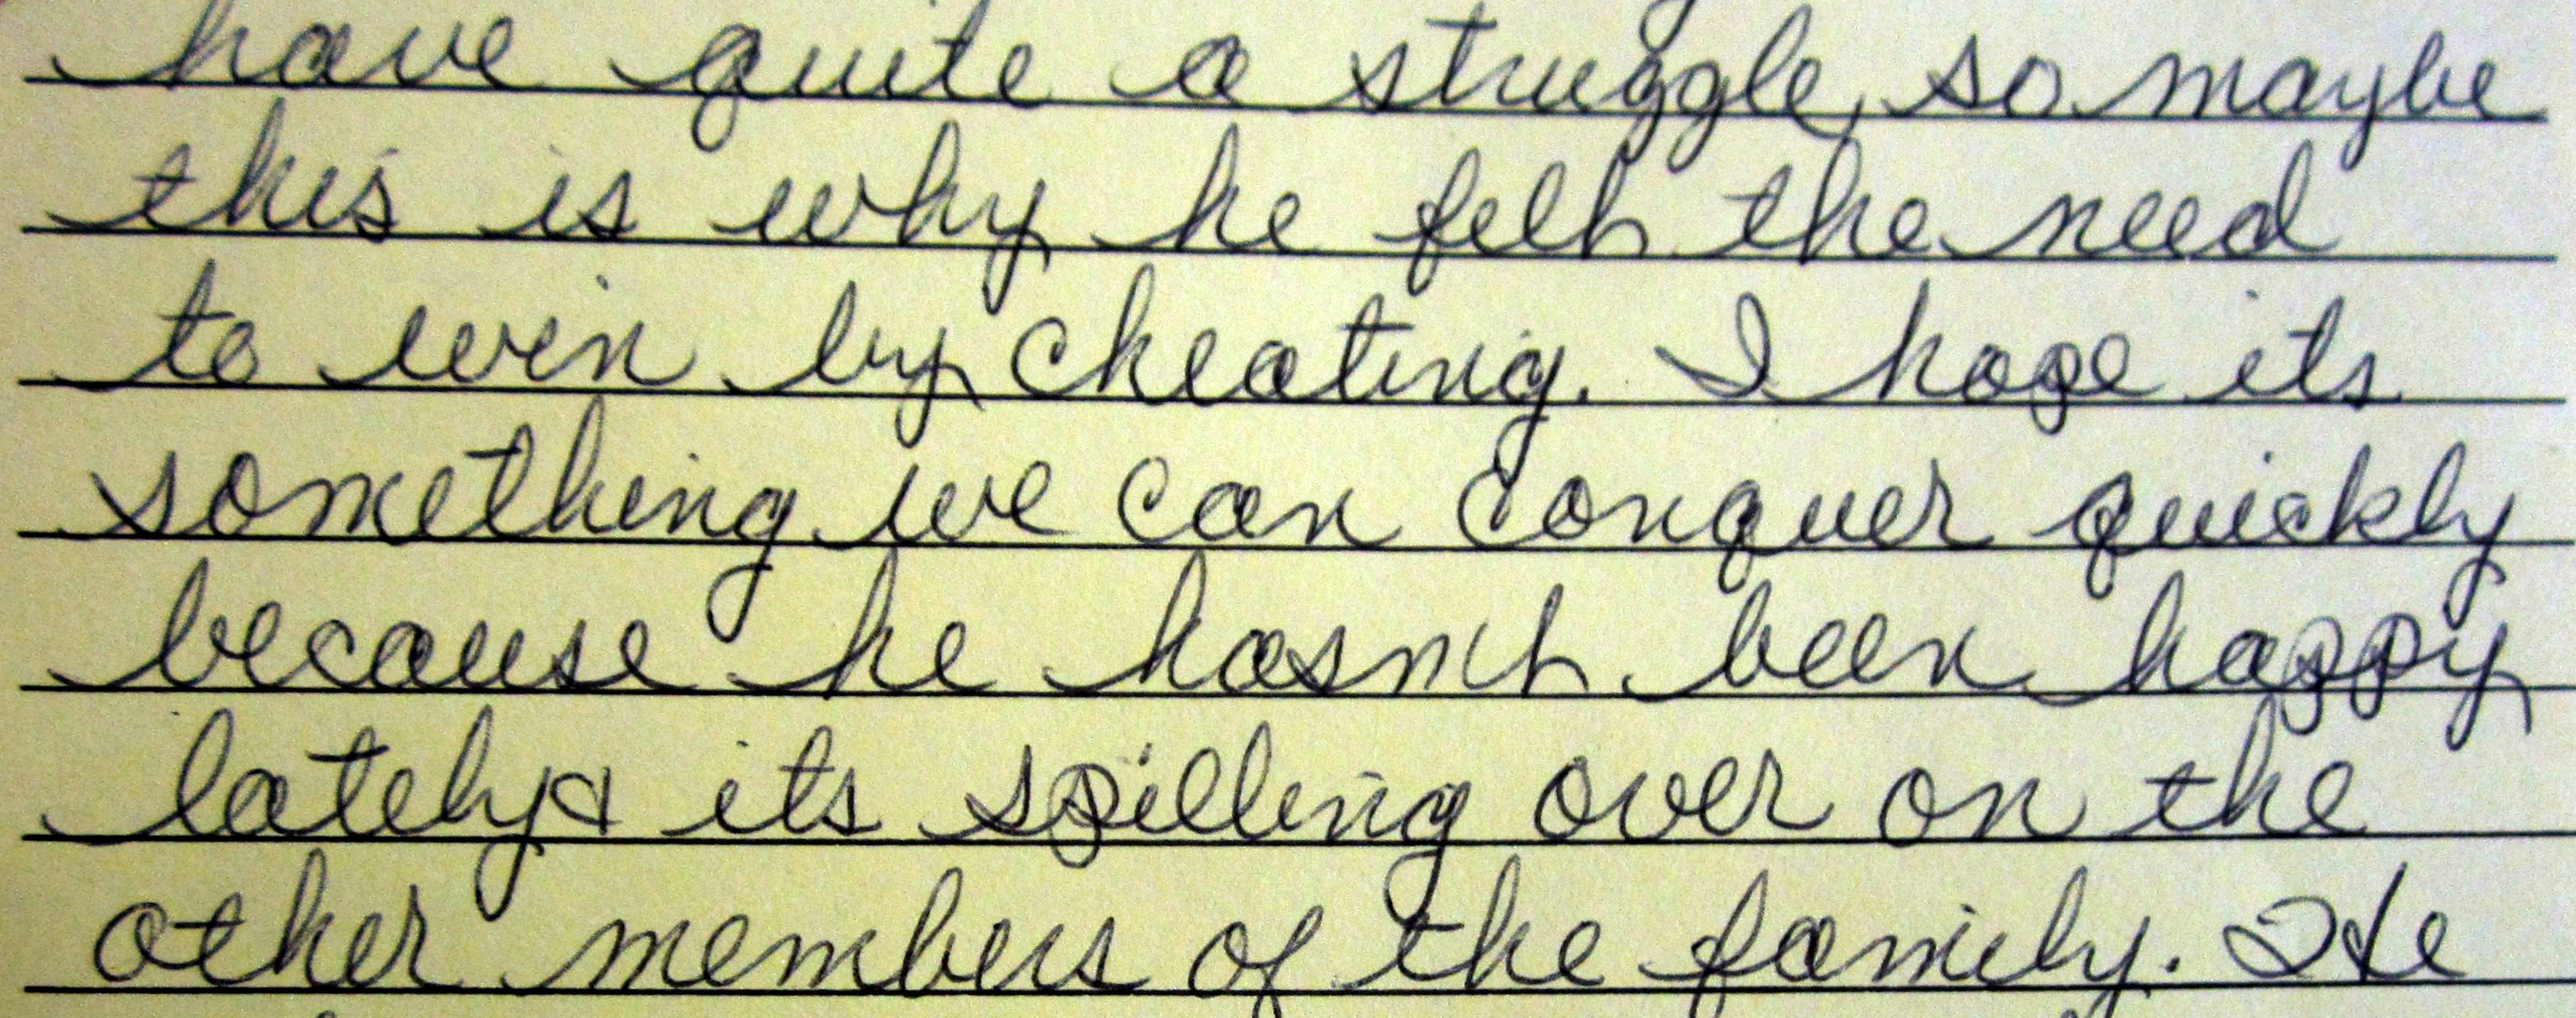 have quite a struggle, so maybe
this is why he felt the need
to win by cheating. I hope its
something we can conquer quickly
because he hasn't been happy
lately & its spilling over on the
other members of the family. He